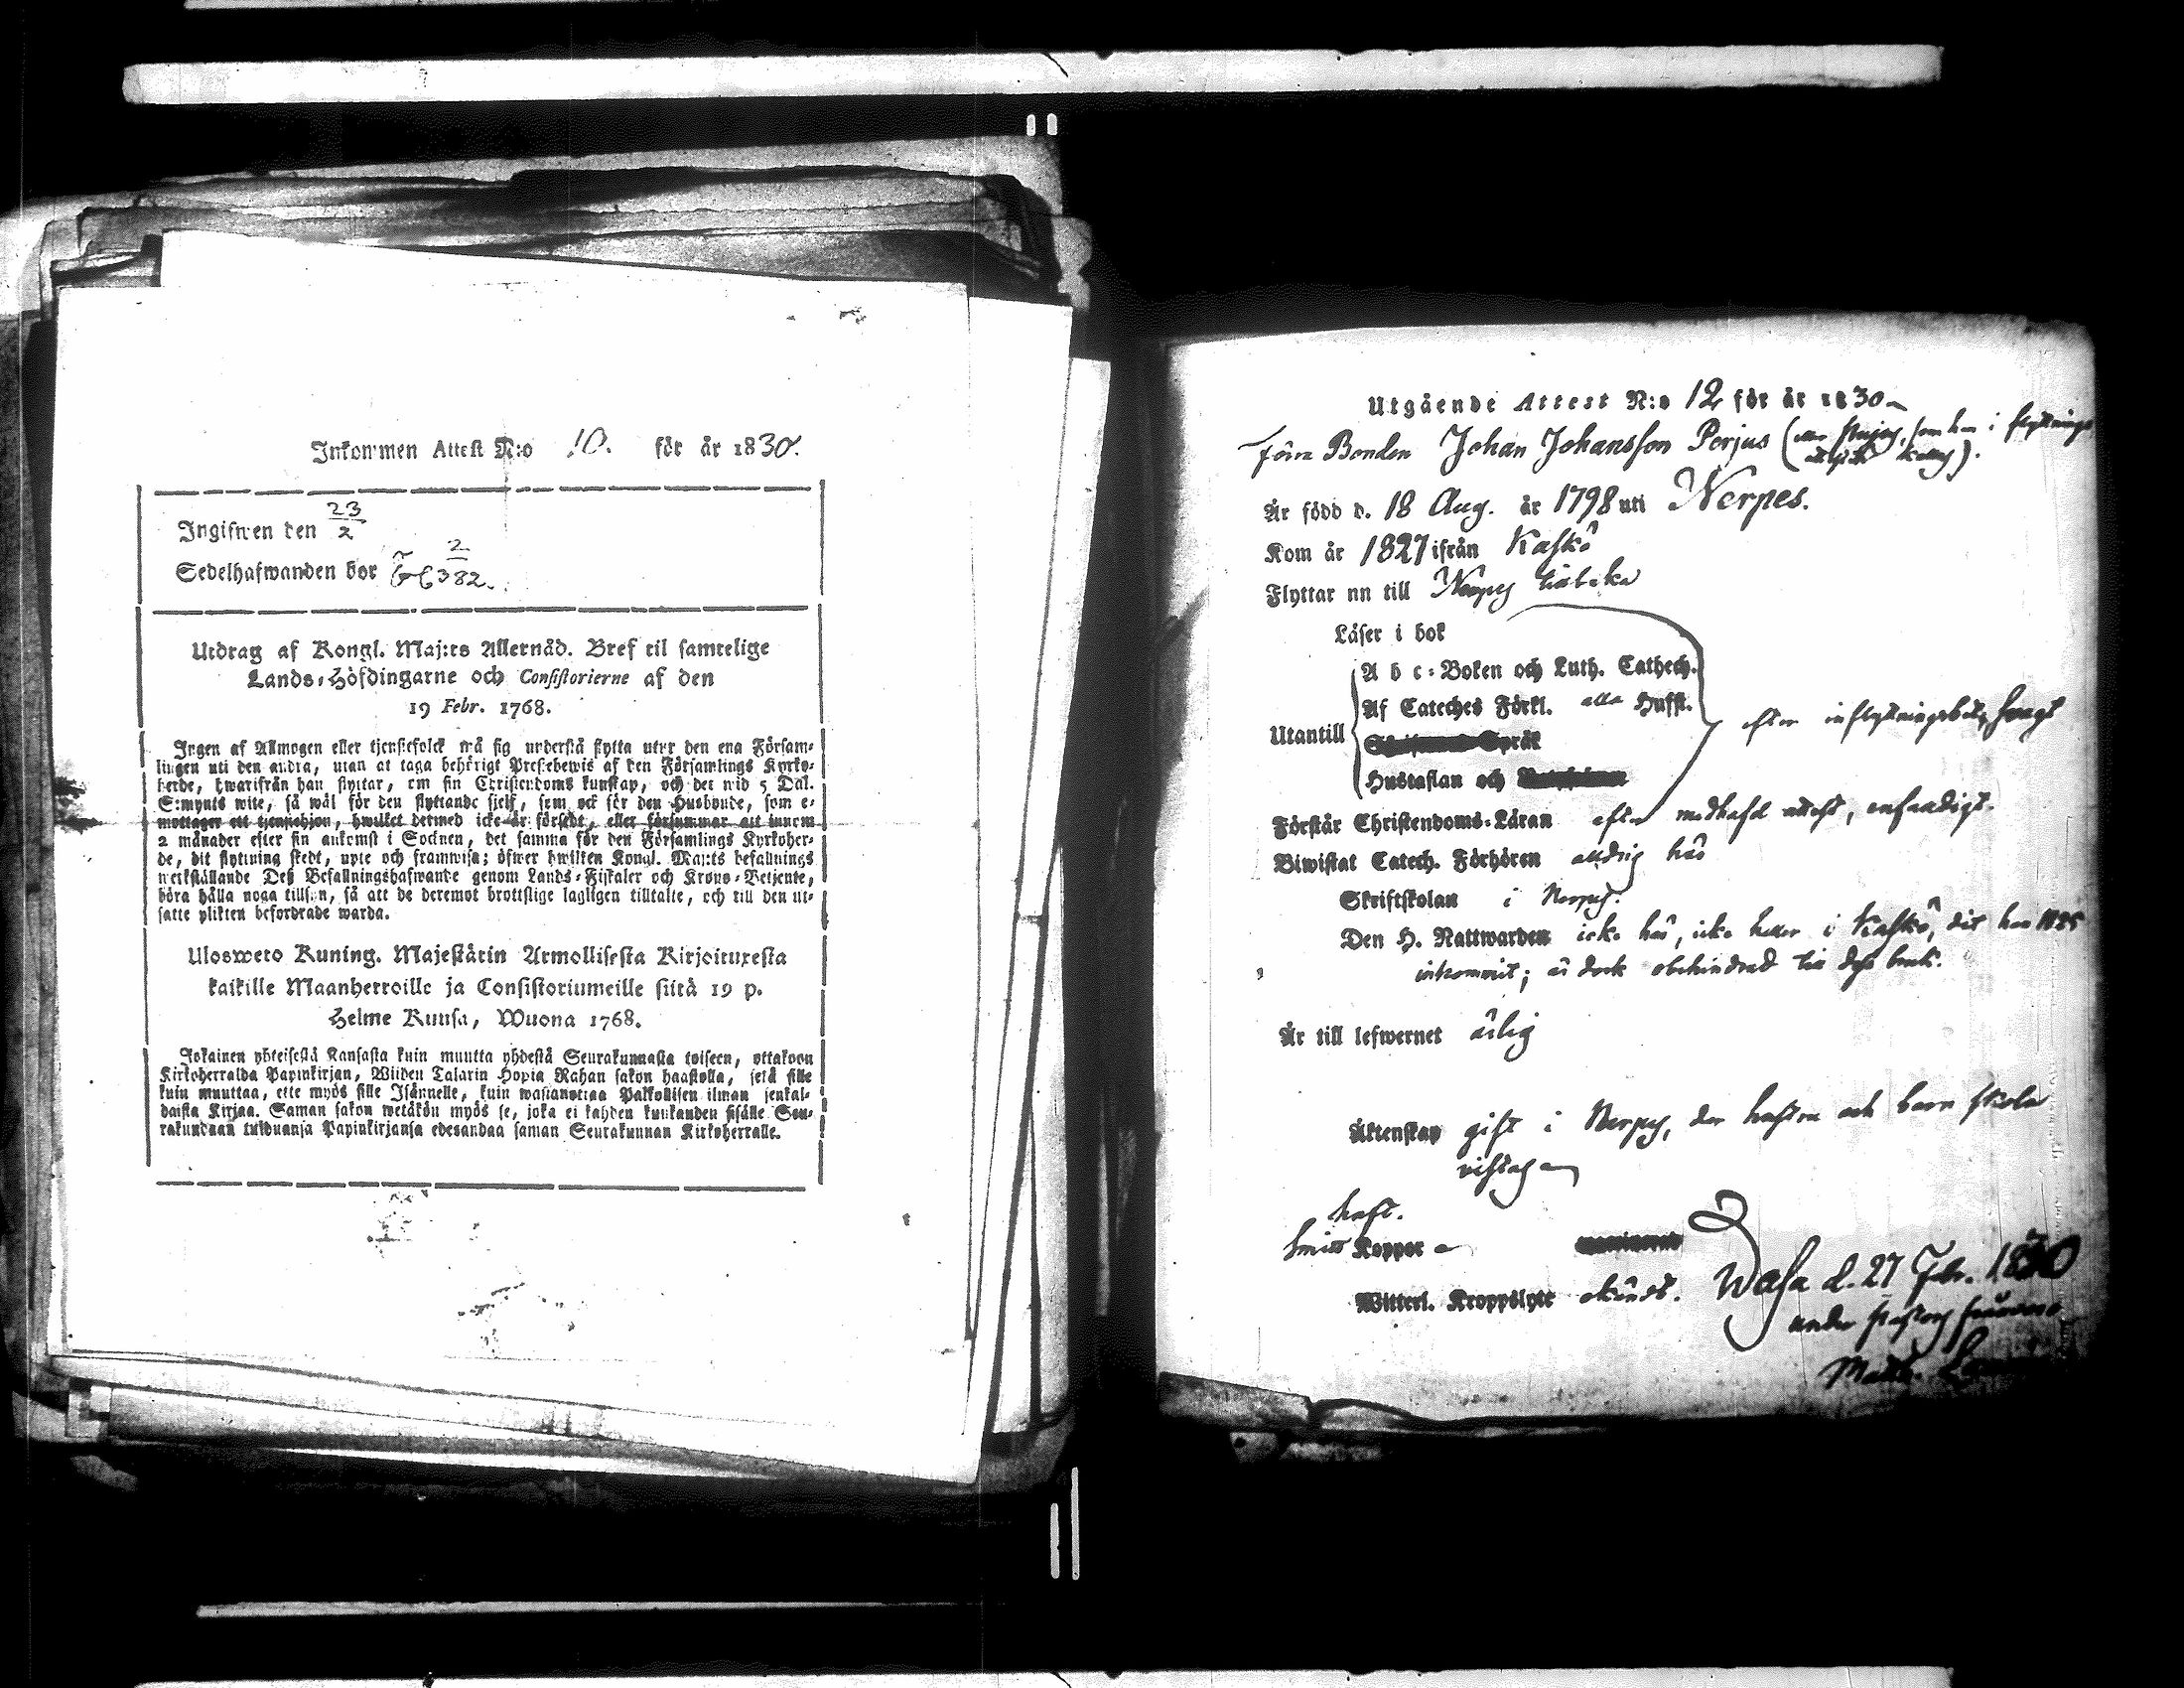 Inkommen Attest N:o 10. för år 1830.
Ingifwen den 23/2
Sedelhafwanden bor 2 382.
Utdrag af Kongl. Maj:ts Allernåd. Bref til samtelige
Lands-Höfdingarne och Consistorierne af den
19 Febr. 1768.
Ingen af Allmogen eller tjenstefolck må sig understå flytta utur den ena Försam-
lingen uti den andra, utan at taga behörigt Prestebewis af den Församlings Kyrko-
herde, hwarifrån han flyttar, om sin Christendoms kunskap, och det wid 5 Dal.
S:mynts wite, så wäl för den flyttande sjelf, som ock för den Husbonde, som e-
mottager ett tjenstehjon, hwilket dermed icke är försedt, eller försummar att innom
2 månader efter sin ankomst i Socknen, det samma för den Församlings Kyrkoher-
de, dit flyttning skedt, upte och framwisa; öfwer hwilken Kongl. Maj:ts befallnings
werkställande Dess Befallningshafwande genom Lands-Fiskaler och Krono-Betjente,
böra hålla noga tillsyn, så att de deremot brottslige lagligen tilltalte, och till den ut-
satte plikten befordrade warda.
Uloswето Kuning. Majestätin Armollisesta Kirjoituxesta
kaikille Maanherroille ja Consistoriumeille siitä 19 p.
Helme Kuusa, Wuona 1768.
Jokainen yhteisestä Kansasta kuin muutta yhdestä Seurakunnasta toiseen, ottakoon
Kirkoherralda Papinkirjan, Wiiden Talarin Hopia Rahan sakon haastolla, sekä sille
kuin muuttaa, ette myös sille Isännelle, kuin wastanottaa Palkollisen ilman senkal-
daista Kirjaa. Saman sakon wetäkön myös se, joka ei kahden kuukauden sisälle Seu-
rakundaan tulduansa Papinkirjansa edesandaa saman Seurakunnan Kirkoherralle.
Utgående Attest N:o 12 för år 1830
Förra Bonden Johan Johansson Perjus ( som han i flyttnings
kallas).
Är född d. 18 Aug. år 1798 uti Nerpes.
Kom år 1827 ifrån Kaskö
Flyttar nu till Nerpes tillbaka
Läser i bok
A b c-Boken och Luth. Cathech.
Af Cateches Förkl. alla Hufst.
Utantill efter inflyttningsbetyg
Språk
Hustaflan och
Förstår Christendoms-Läran efter medhafd attest, enfaldigt.
Biwistat Catech. Förhören aldrig här
Skriftskolan i Nerpes.
Den H. Nattwarden icke här, icke heller i Kaskö, dit han 1825
inkommit; är dock obehindrad till dess bruk.
Är till lefwernet ärlig
Äktenskap gift i Nerpes, der hustru och barn skola
vistas
haft.
Koppor
Witterl. Kroppslyte okändt. Wasa d. 27 Febr. 1830
under
Matth.